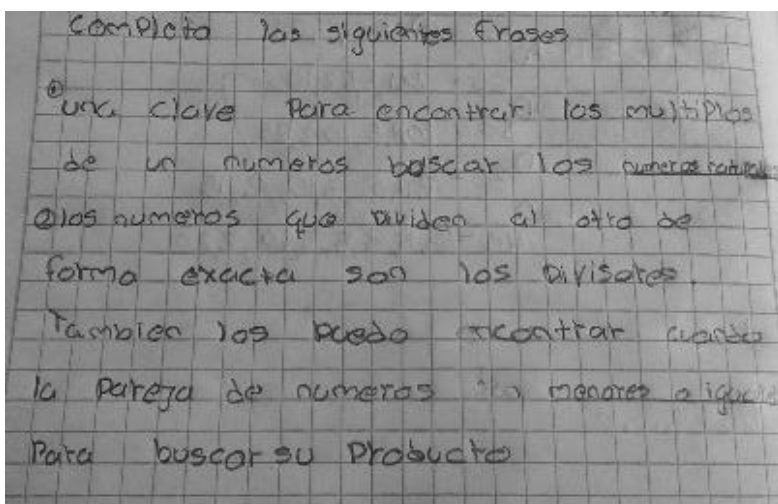 Completa las siguientes frases
① una clave para encontrar los multiplos
de un numeros bascar los numeros
② los numeros que dividen al otro de
forma exacta son los divisores.
Tambien los puedo encontrar cuando
la pareja de numeros menores o iguales
Para buscar su producto